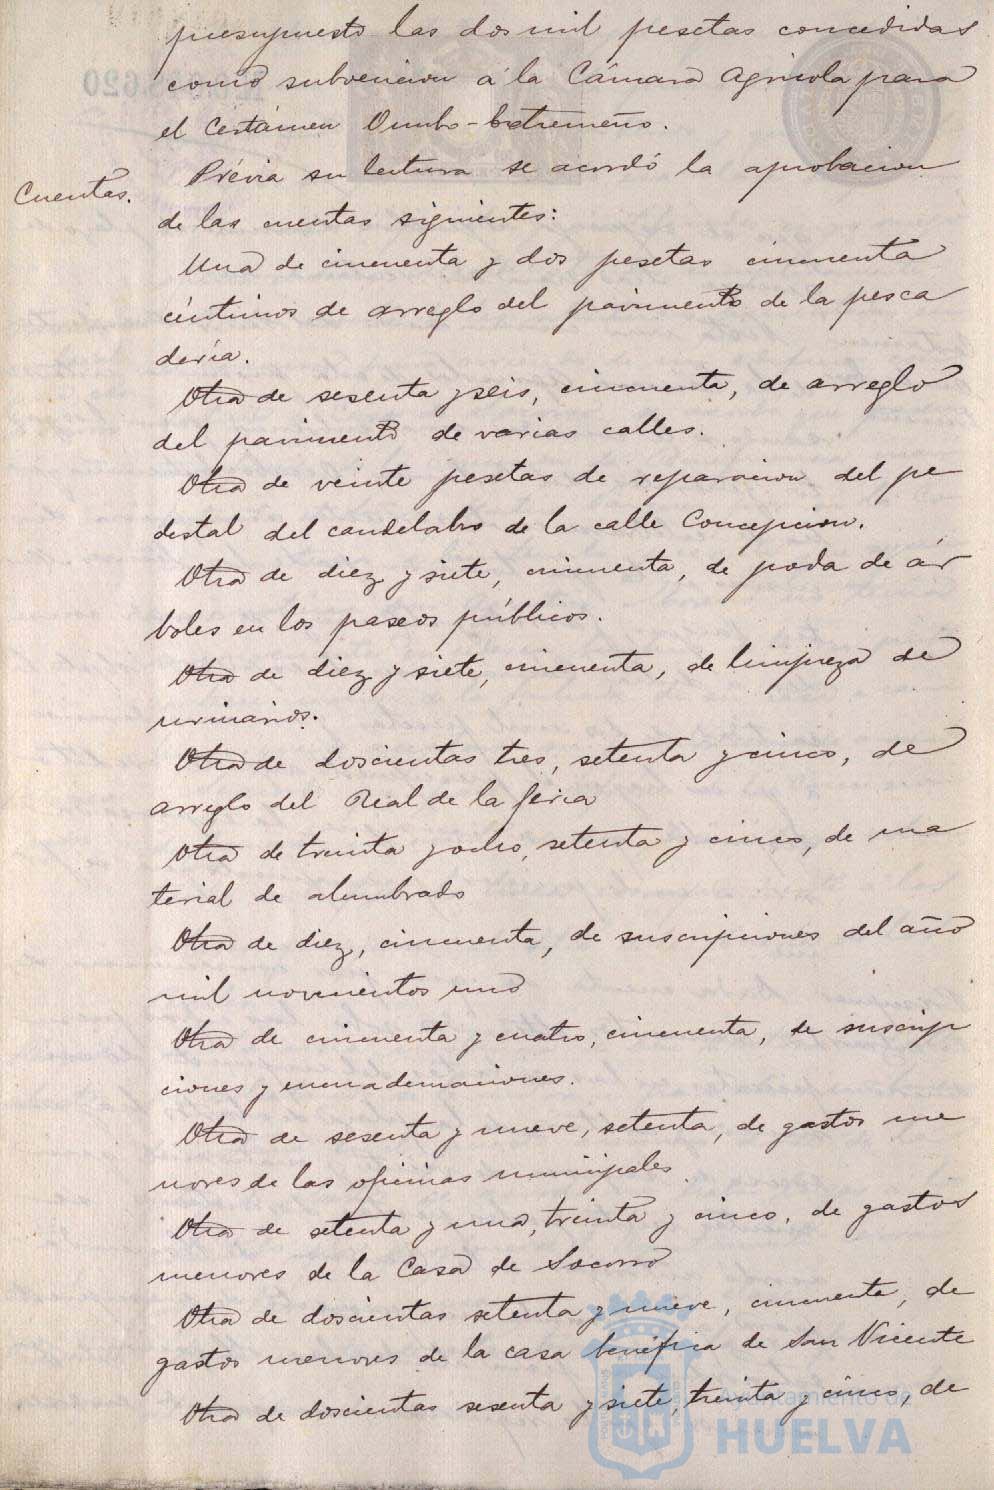 presupuesto las dos mil pesetas concedidas
como subvencion á la Cámara Agricola para
el Certámen Onubo-Extremeño.
Cuentas.
Prévia su lectura se acordó la aprobacion
de las cuentas siguientes:
Una de cincuenta y dos pesetas cincuenta
céntimos de arreglo del pavimento de la pesca
dería.
Otra de sesenta y seis, cincuenta, de arreglo
del pavimento de varias calles.
Otra de veinte pesetas de reparacion del pe
destal del candelabro de la calle Concepcion.
Otra de diez y siete, cincuenta, de poda de ár
boles en los paseos públicos.
Otra de diez y siete, cincuenta, de limpieza de
urinarios.
Otra de doscientas tres, setenta y cinco, de
arreglo del Real de la feria
Otra de treinta y ocho, setenta y cinco, de ma
terial de alumbrado
Otra de diez, cincuenta, de suscripciones del año
mil novecientos uno
Otra de cincuenta y cuatro, cincuenta, de suscrip
ciones y encuadernaciones.
Otra de sesenta y nueve, setenta, de gastos me
nores de las oficinas municipales
Otra de setenta y una, treinta y cinco, de gastos
menores de la Casa de Socorro
Otra de doscientas setenta y nueve, cincuenta, de
gastos menores de la casa benéfica de San Vicente
Otra de doscientas sesenta y siete, treinta y cinco, de
Ayuntamiento de
HUELVA